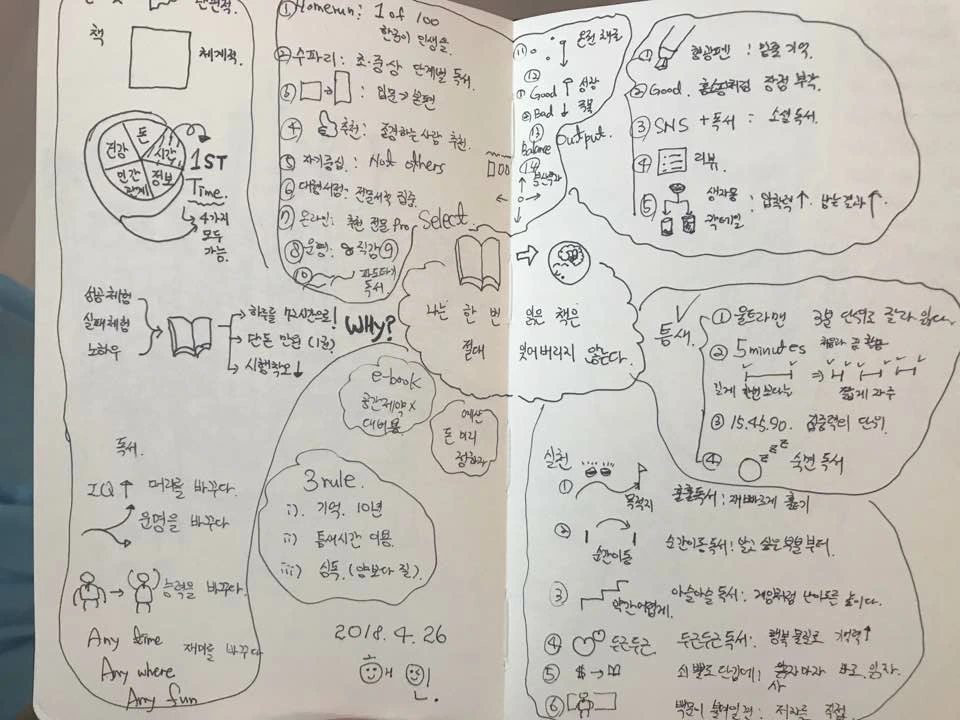 단편적.
책
체계적.
돈
건강
시간
정보
인간
관계
1ST
Time.
4가지
모두
가능.
성공체험
실패체험
노하우
하루를 72시간으로!
단돈 만원 (1권)
시행착오↓
WHY?
독서.
IQ↑ 머리를 바꾸다.
운명을 바꾸다
능력을 바꾸다.
Any time
재미를 바꾸다
Any where
Any fun
① Homerun: 1 of 100
한권이 인생을.
② 수파리: 초·중·상 단계별 독서.
③ 입문→
④ 추천: 존경하는 사람 추천.
⑤ 자기중심: Not others
⑥ 대형서점: 전문서적 집중.
⑦ 온라인: 추천 전문 Pro
⑧ 운명: 직감 ⑨
⑩ 파도타기
독서
Select
⑪
⑫
① Good ↑ 성장
② Bad ↓
⑬
Balance
⑭
Output.
① 형광펜 : 기억.
② Good. 장점 부각.
③ SNS + 독서 : 소셜 독서.
④ 리뷰.
⑤ 생자몽
칵테일 : 입학력↑. 남는 결과↑.
나는 한 번 읽은 책은
절대 잊어버리지 않는다.
e-book
공간제약 x
대비용
예산
돈 미리
정하라
3 rule.
i). 기억. 10년
ii) 틈새시간 이용.
iii) 심독. (양보다 질).
2018. 4. 26
틈새.
① 울트라맨 3분 단위로 잘라 읽는다.
② 5 minutes
길게 한번 쓰다듬 ⇒ 짧게 자주
③ 15.45.90. 집중력의 단위.
④ zzz 숙면 독서
실천
① 목적지 훌훌독서: 재빠르게 훑기
② 순간이동 순간이동독서! 알고 싶은 것 부터.
③ 약간어렵게. 아슬아슬 독서: 게임처럼 난이도를 높이다.
④ 두근두근 두근두근 독서: 행복 물질로 기억력↑
⑤ $ → 쇠뿔도 단김에; 사자마자 바로 읽자.
⑥ 백문이 불여일견: 저자를 직접